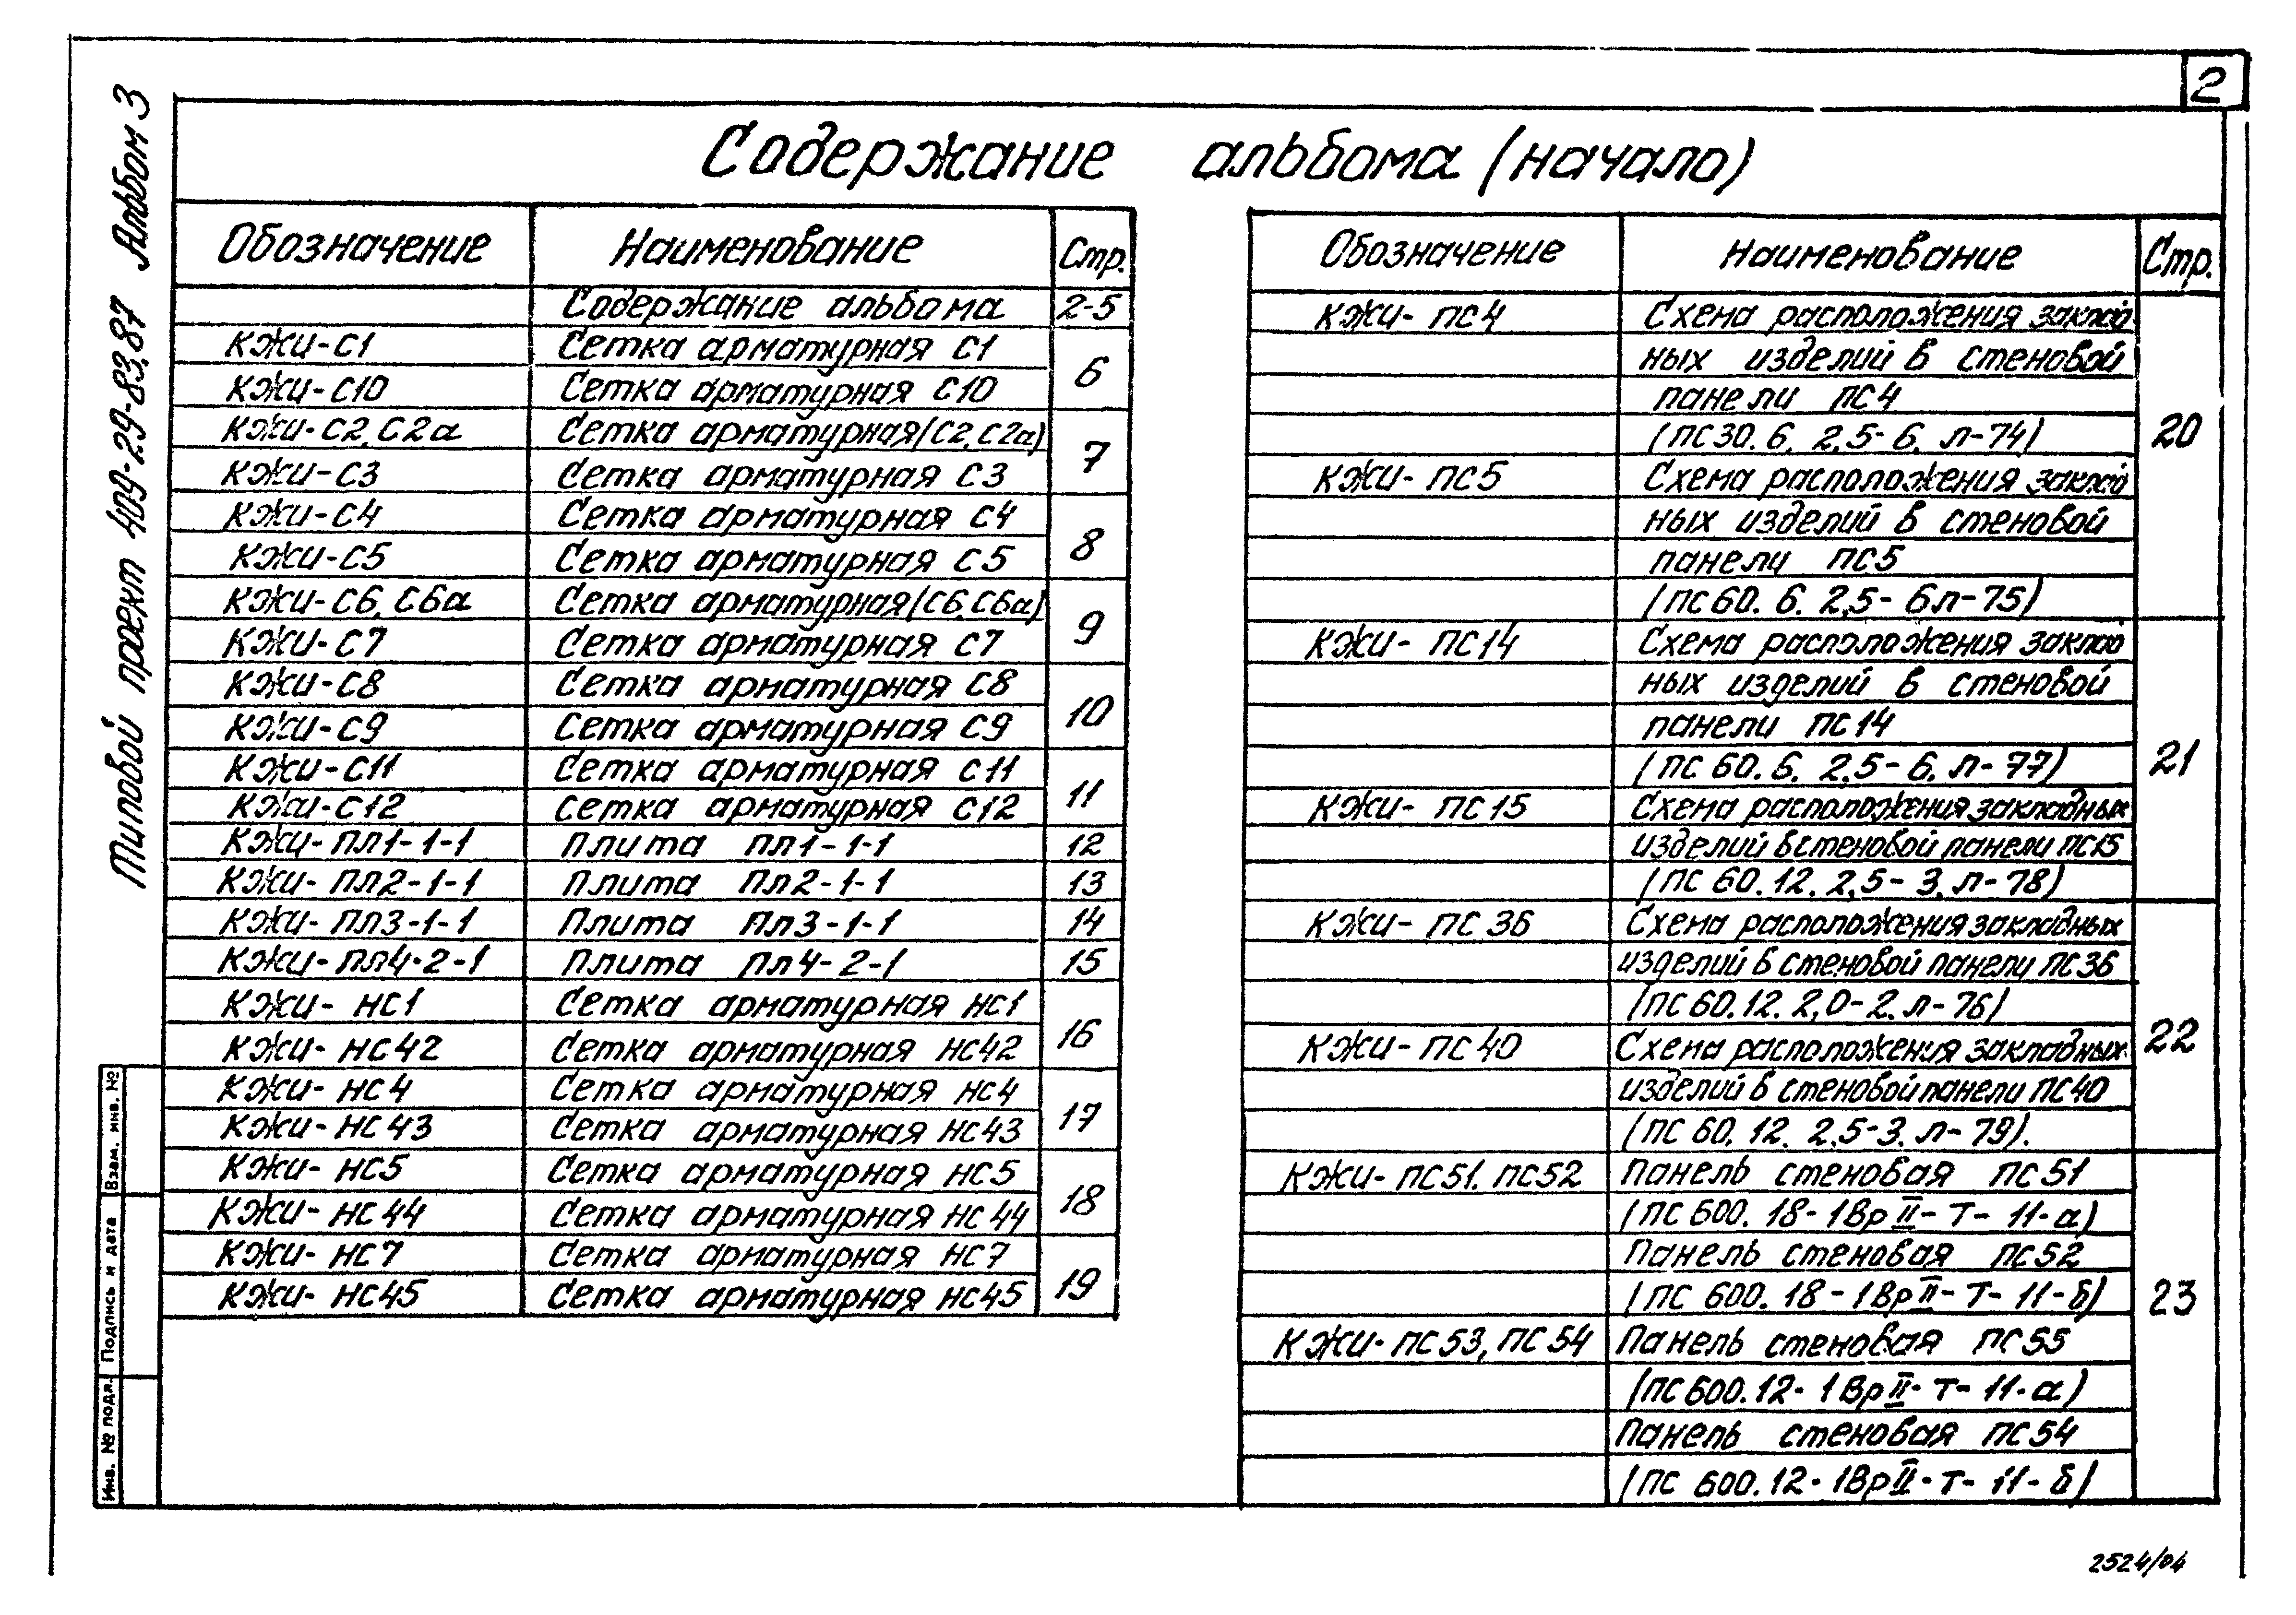 2
Типовой проект 409-29-83.87 Альбом 3
Содержание альбома (начало)
Обозначение Наименование Стр.
Содержание альбома 2-5
КЖИ-С1 Сетка арматурная С1 6
КЖИ-С10 Сетка арматурная С10
КЖИ-С2, С2а Сетка арматурная (С2, С2а) 7
КЖИ-С3 Сетка арматурная С3
КЖИ-С4 Сетка арматурная С4 8
КЖИ-С5 Сетка арматурная С5
КЖИ-С6, С6а Сетка арматурная (С6, С6а) 9
КЖИ-С7 Сетка арматурная С7
КЖИ-С8 Сетка арматурная С8 10
КЖИ-С9 Сетка арматурная С9
КЖИ-С11 Сетка арматурная С11 11
КЖИ-С12 Сетка арматурная С12
КЖИ-ПЛ1-1-1 Плита ПЛ1-1-1 12
КЖИ-ПЛ2-1-1 Плита ПЛ2-1-1 13
КЖИ-ПЛ3-1-1 Плита ПЛ3-1-1 14
КЖИ-ПЛ4-2-1 Плита ПЛ4-2-1 15
КЖИ-НС1 Сетка арматурная НС1 16
КЖИ-НС42 Сетка арматурная НС42
КЖИ-НС4 Сетка арматурная НС4 17
КЖИ-НС43 Сетка арматурная НС43
КЖИ-НС5 Сетка арматурная НС5 18
КЖИ-НС44 Сетка арматурная НС44
КЖИ-НС7 Сетка арматурная НС7 19
КЖИ-НС45 Сетка арматурная НС45
Обозначение Наименование Стр.
КЖИ-ПС4 Схема расположения заклад
ных изделий в стеновой
панели ПС4
(ПС30.6. 2,5-6. Л-74) 20
КЖИ-ПС5 Схема расположения заклад
ных изделий в стеновой
панели ПС5
(ПС60.6. 2,5-6Л-75)
КЖИ-ПС14 Схема расположения заклад
ных изделий в стеновой
панели ПС14
(ПС60.6. 2,5-6. Л-77) 21
КЖИ-ПС15 Схема расположения закладных
изделий в стеновой панели ПС15
(ПС 60.12. 2,5-3. Л-78)
КЖИ-ПС36 Схема расположения закладных
изделий в стеновой панели ПС36
(ПС60.12. 2,0-2. Л-76)
КЖИ-ПС40 Схема расположения закладных 22
изделий в стеновой панели ПС40
(ПС60.12. 2,5-3. Л-79).
КЖИ-ПС51. ПС52 Панель стеновая ПС51
(ПС600.18-1ВрII-Т-11-а)
Панель стеновая ПС52
(ПС 600.18-1ВрII-Т-11-б) 23
КЖИ-ПС53, ПС54 Панель стеновая ПС55
(ПС600.12-1ВрII-Т-11-а)
Панель стеновая ПС54
(ПС 600.12-1ВрII-Т-11-б)
Взам. инв. №
Подпись и дата
Инв. № подл.
2524/04